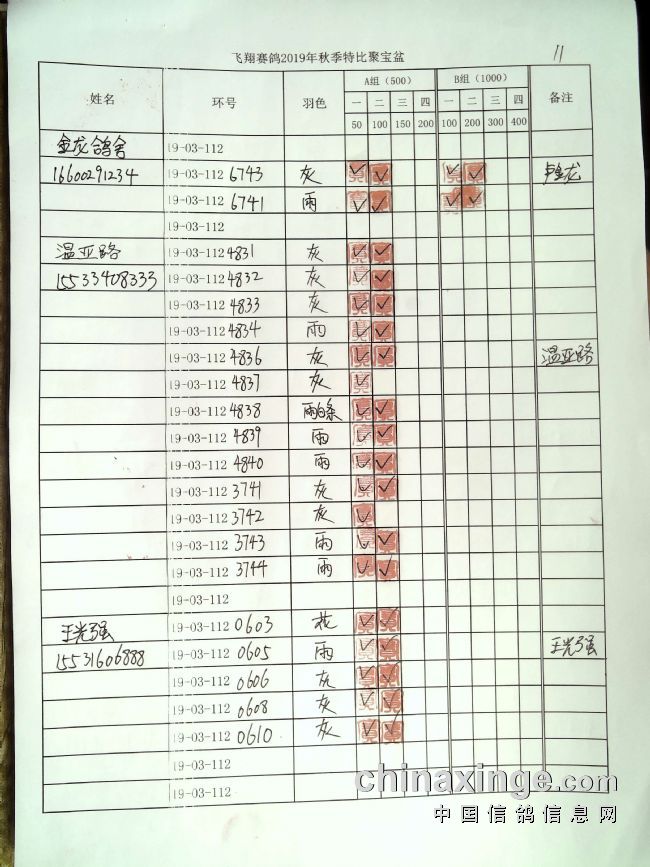 飞翔赛鸽2019年秋季特比聚宝盆
11
姓名 环号 羽色 A组（500） B组（1000） 备注
一 二 三 四 一 二 三 四
50 100 150 200 100 200 300 400
金龙鸽舍 19-03-112
16600291234 19-03-112 6743 灰 ✓ ✓ ✓ ✓ 金龙
19-03-112 6741 雨 ✓ ✓ ✓ ✓
19-03-112
温亚路 19-03-112 4831 灰 ✓ ✓
15533408333 19-03-112 4832 灰 ✓ ✓
19-03-112 4833 灰 ✓ ✓
19-03-112 4834 雨 ✓ ✓
19-03-112 4836 灰 ✓ ✓ 温亚路
19-03-112 4837 灰 ✓
19-03-112 4838 雨白条 ✓ ✓
19-03-112 4839 雨 ✓ ✓
19-03-112 4840 雨 ✓ ✓
19-03-112 3741 灰 ✓ ✓
19-03-112 3742 灰 ✓
19-03-112 3743 雨 ✓ ✓
19-03-112 3744 雨 ✓ ✓
19-03-112
王光强 19-03-112 0603 花 ✓ ✓
15531606888 19-03-112 0605 雨 ✓ ✓ 王光强
19-03-112 0606 灰 ✓ ✓
19-03-112 0608 灰 ✓ ✓
19-03-112 0610 灰 ✓ ✓
19-03-112
19-03-112
chinaxinge.com
中国信鸽信息网